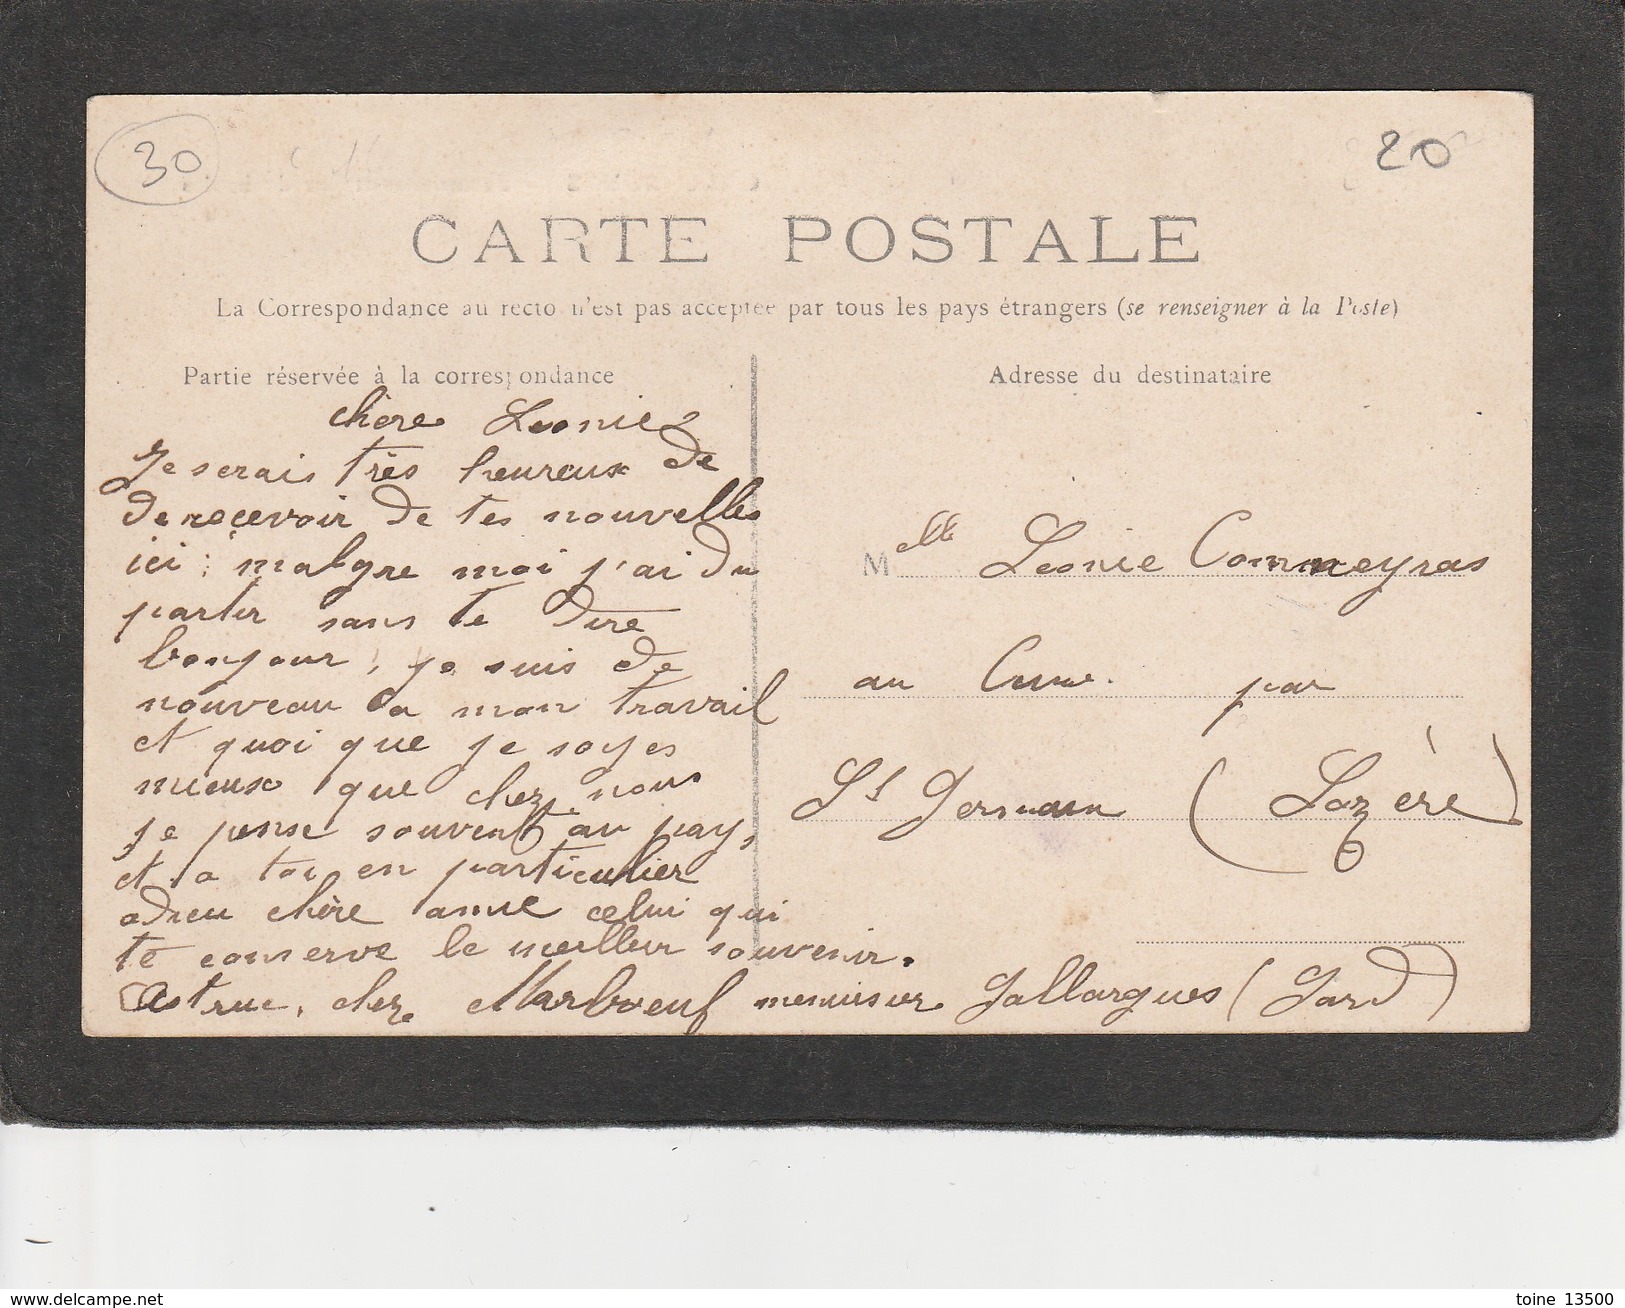 30
20
CARTE POSTALE
La Correspondance au recto n'est pas acceptée par tous les pays étrangers (se renseigner à la Poste)
Partie réservée à la correspondance
Adresse du destinataire
chère Leonie
Je serais très heureux de
de recevoir de tes nouvelles
ici ; malgre moi j'ai du
partir sans te dire
bonjour, je suis de
nouveau a mon travail
et quoi que je soyes
mieux que chez nous
je pense souvent au pays
et a toi en particulier
adieu chère amie celui qui
te conserve le meilleur souvenir.
Astruc, chez Marboeuf menuisier Gallargues (Gard)
Melle Leonie Commeyras
au par
St Germain (Lozère)
www.delcampe.net
toine 13500